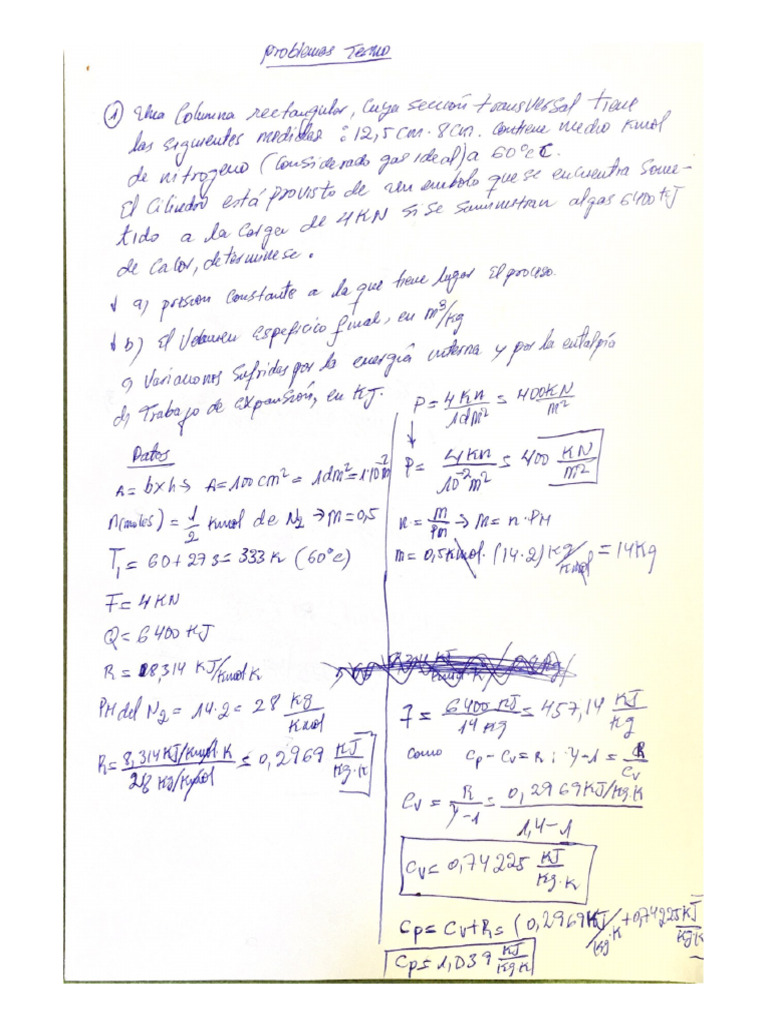 Problemas Termo
① Una Columna rectangular, cuya sección transversal tiene
las siguientes medidas : 12,5cm · 8cm. contiene medio Kmol
de nitrogeno (considerado gas ideal) a 60°C.
El Cilindro está provisto de un embolo que se encuentra some-
tido a la carga de 4KN si se suministran al gas 6400 KJ
de Calor, determinese.
a) presion constante a la que tiene lugar El proceso.
b) El Volumen espeficio final, en m³/kg
c) Variaciones sufridas por la energía interna y por la entalpía
d) Trabajo de expansión, en KJ.
Datos
A = b×h → A = 100cm² = 1dm² = 1·10⁻²m²
n(moles) = 1/2 Kmol de N₂ → m = 0,5
T₁ = 60 + 273 = 333 K (60°C)
F = 4KN
Q = 6400 KJ
R = 8,314 KJ/Kmol K
PM del N₂ = 14·2 = 28 kg/Kmol
R = 8,314 KJ/Kmol K / 28 kg/Kmol = 0,2969 KJ/kg·K
P = 4KN/1dm² = 400KN/m²
P = 4KN/10⁻²m² = 400 KN/m²
n = m/PM → m = n·PM
m = 0,5Kmol·(14·2) kg/Kmol = 14Kg
q = 6400 KJ/14 kg = 457,14 KJ/kg
como Cp - Cv = R ; γ-1 = R/Cv
Cv = R/γ-1 = 0,2969KJ/kg·K / 1,4-1
Cv = 0,74225 KJ/kg·K
Cp = Cv + R = (0,2969KJ/kg·K + 0,74225KJ/kg·K
Cp = 1,039 KJ/kg·K